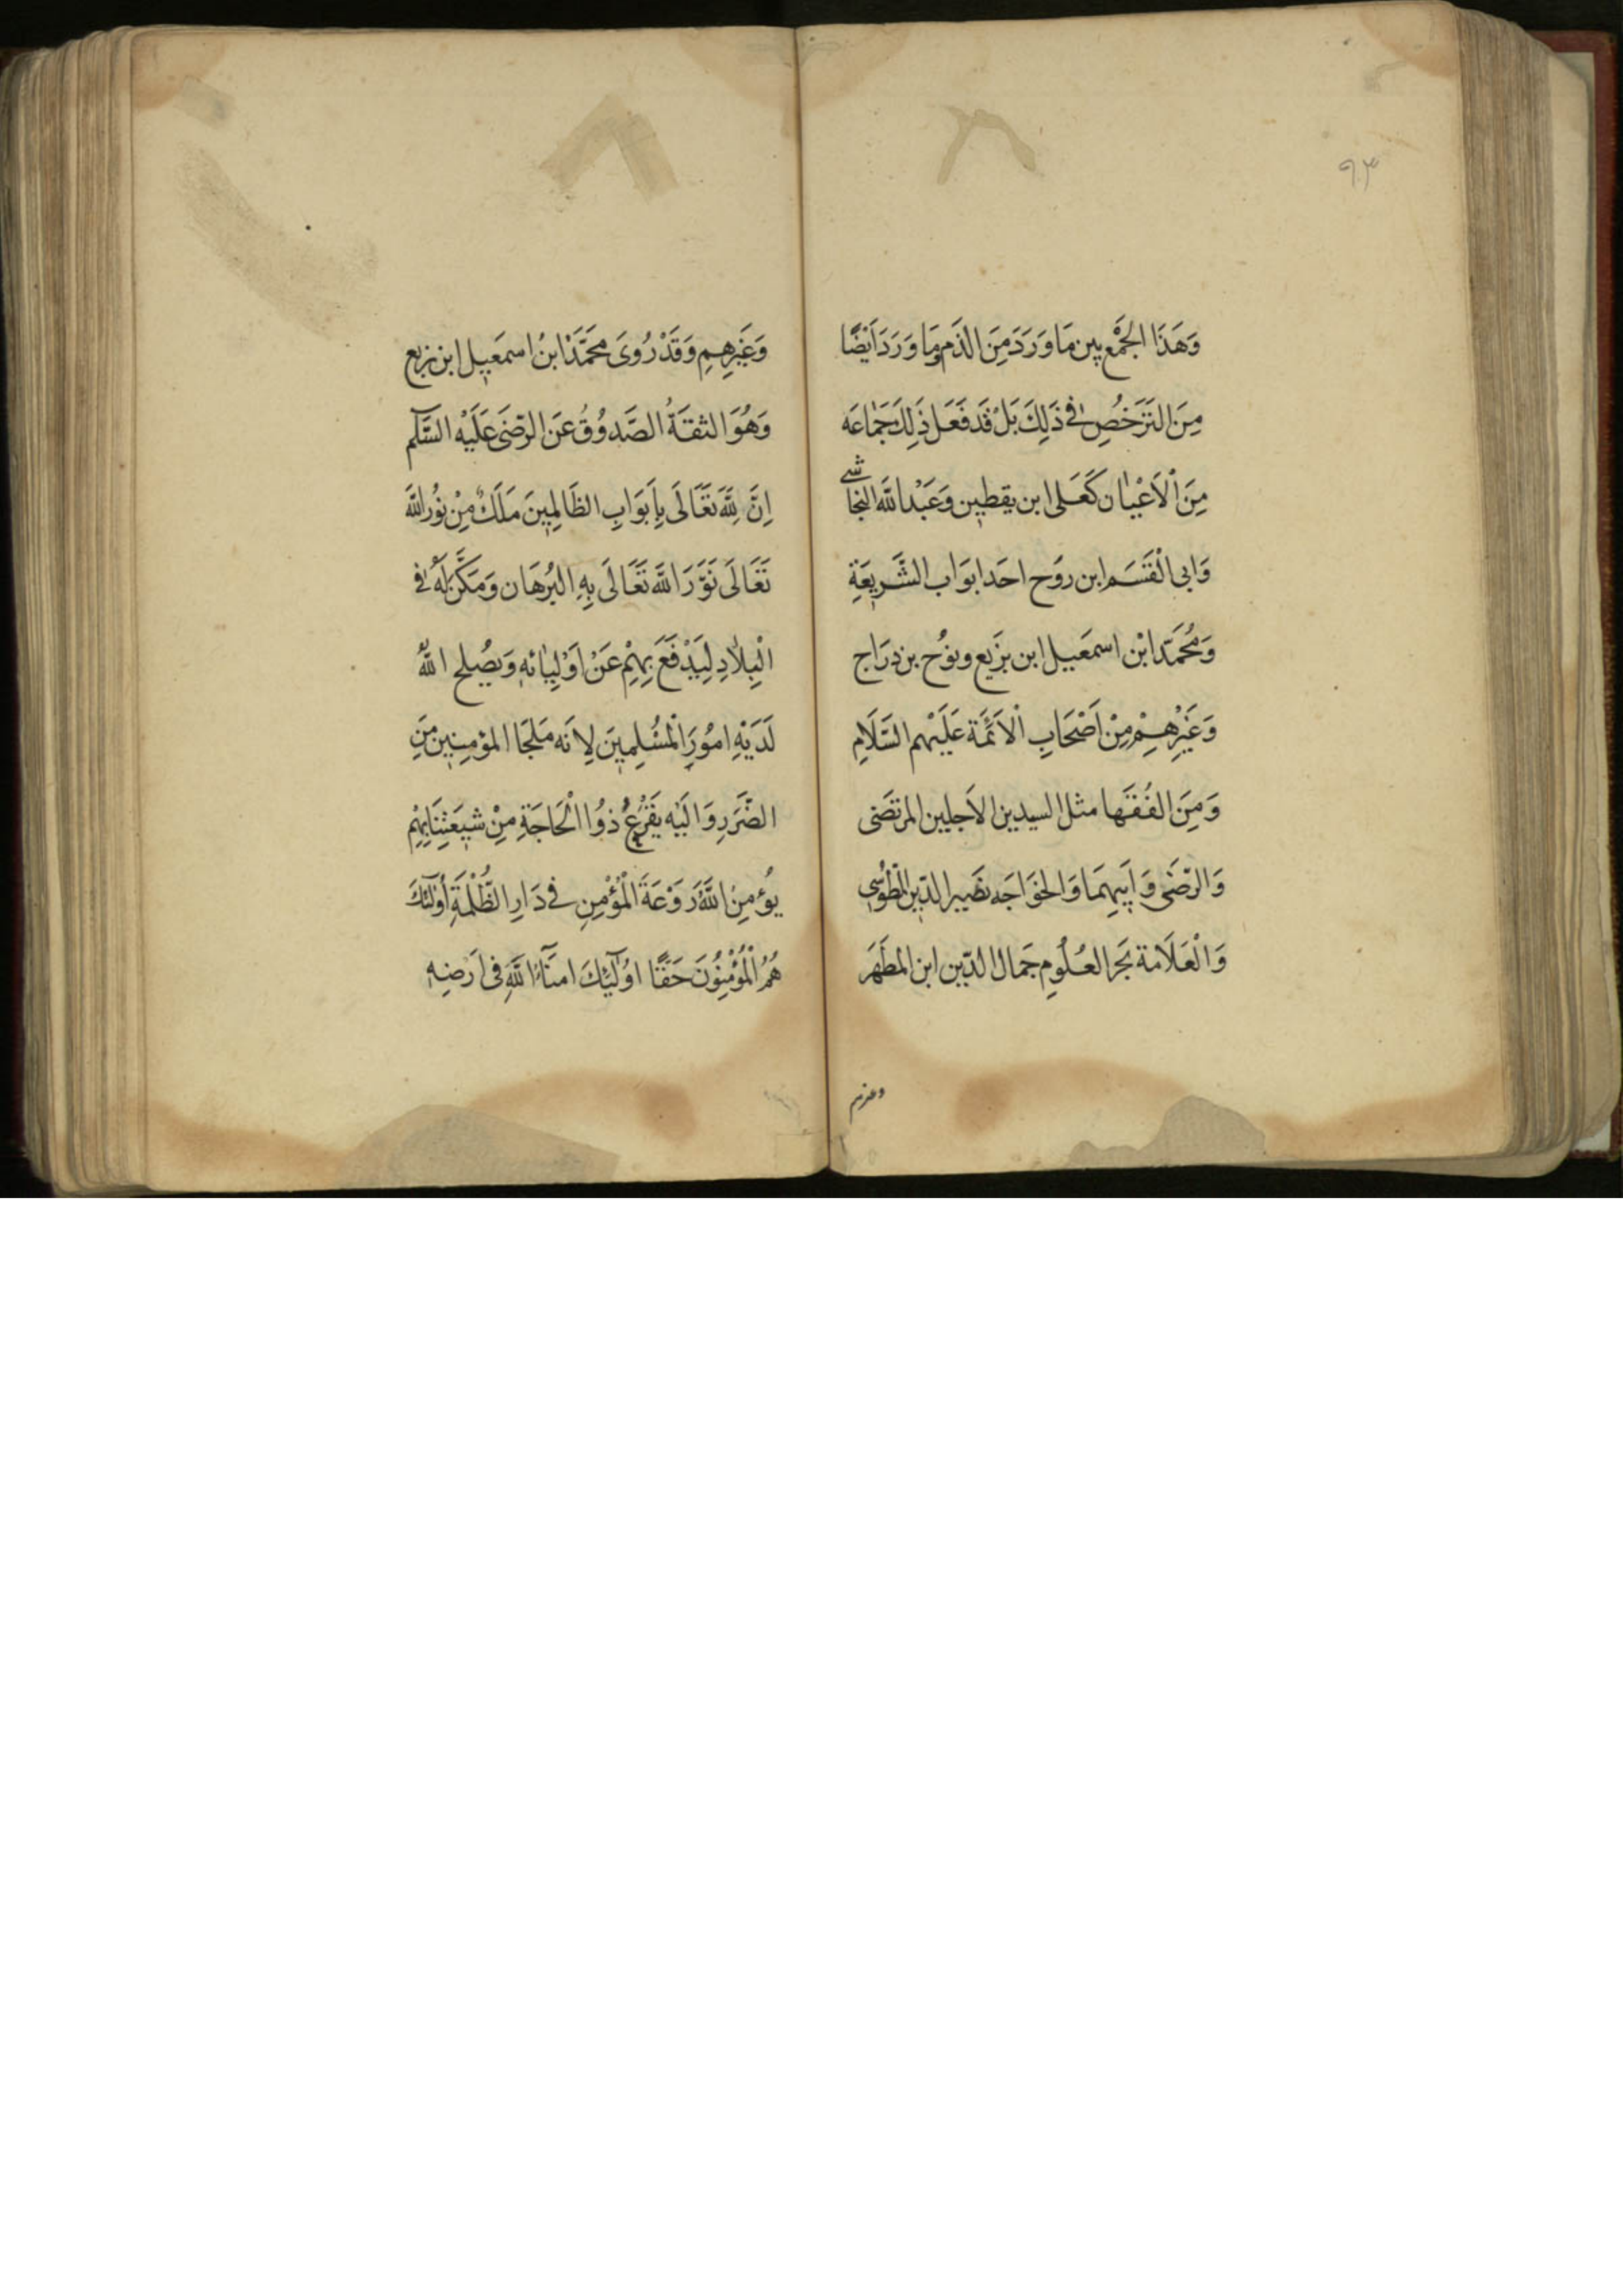 ٩٣
وَهَذَا الجَمْع بين مَا وَرَدَ مِنَ الذَم وَمَا وَرَدَ اَيْضًا
مِنَ التَرَخُصِ فى ذَلِكَ بَلْ قَد فَعَل ذَلِكَ جَمَاعَه
مِنَ اْلاَعْيٰان كَعَلى ابن يقطين وَعَبْد اللَّه النجاشى
وَابى الْقَسَم ابن روَح احَد ابوَاب الشَّريعَةِ
وَمُحَمَّد ابْن اسمَعيل ابن بزَيع ونوُح بن درَاج
وَغَيْرِهِمْ مِنْ اَصْحَابِ اْلاَئمَة عَلَيْهم السَّلَامِ
وَمِنَ الفُقَهَا مثل السيدين الاَجلين المرتضَى
وَالرّضَى وَاَبيهِمَا وَالخوَاجَه نصَير الدّين الطوُسى
وَالْعَلَامَة بَحَر العُلُوم جَمَال الدّين ابن المطَهَر
وغيرهم
وَغَيْرِهِمِ وَقَدْ رُوىَ محَمَّدْ ابنُ اسمعَيل ابن بزيع
وَهُوَ الثقَةُ الصَّدوُقُ عَن الرضَى عَلَيْه السَّلٰم
اِنَّ لِلَّه تَعَالَى بِاَبوَابِ الظَالِمِينَ مَلَكٌ مِنْ نُور اللَّه
تَعَالَى نَوَّرَ اللَّه تَعَالَى بِهِ البُرهَان وَمَكَّن لَهُ فى
الْبِلاٰدِ لِيَدْفَعَ بِهِمْ عَنْ اَوْلِيٰائه وَيصُلح اللَّهُ
لَدَيْهِ امُوُرَ اْلمُسْلِمينَ لِانَه مَلجَا المؤمِنين مِنَ
الضَّرَرِ وَالَيْه يَفْزَعُ ذوُا اْلحَاجَةِ مِنْ شيعَتِنَا بِهِمْ
يُؤمِنُ اللَّهُ رَوْعَةَ الْمُؤْمِنِ فى دَارِ الظُّلْمَةِ اُولٰئكَ
هُمُ الْمُؤْمِنُونَ حَقًّا اوُلٰئِكَ امنَآءُ اللَّهِ فى اَرضِهِ